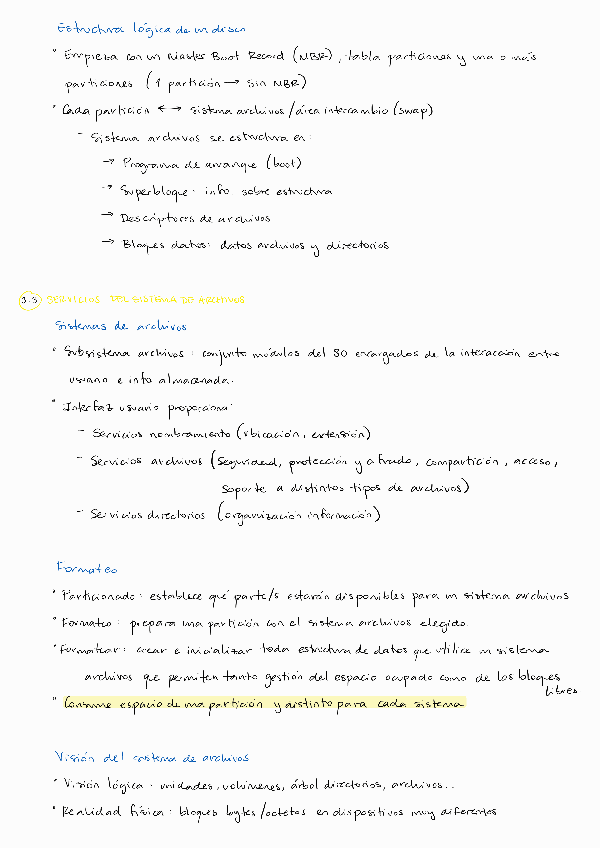 Estructura lógica de un disco
• Empieza con un Master Boot Record (MBR), tabla particiones y una o más
particiones (1 partición → sin MBR)
• Cada partición ↔ sistema archivos/área intercambio (swap)
- Sistema archivos se estructura en:
→ Programa de arranque (boot)
→ Superbloque: info sobre estructura
→ Descriptores de archivos
→ Bloques datos: datos archivos y directorios
3.3 SERVICIOS DEL SISTEMA DE ARCHIVOS
Sistemas de archivos
• Subsistema archivos: conjunto módulos del SO encargados de la interacción entre
usuario e info almacenada.
• Interfaz usuario proporciona:
- Servicios nombramiento (ubicación, extensión)
- Servicios archivos (seguridad, protección y cifrado, compartición, acceso,
soporte a distintos tipos de archivos)
- Servicios directorios (organización información)
Formateo
• Particionado: establece qué parte/s estarán disponibles para un sistema archivos
• Formateo: prepara una partición con el sistema archivos elegido.
• Formatear: crear e inicializar toda estructura de datos que utilice un sistema
archivos que permiten tanto gestión del espacio ocupado como de los bloques
libres
• Consume espacio de una partición y distinto para cada sistema
Visión del sistema de archivos
• Visión lógica: unidades, volúmenes, árbol directorios, archivos...
• Realidad física: bloques bytes/octetos en dispositivos muy diferentes